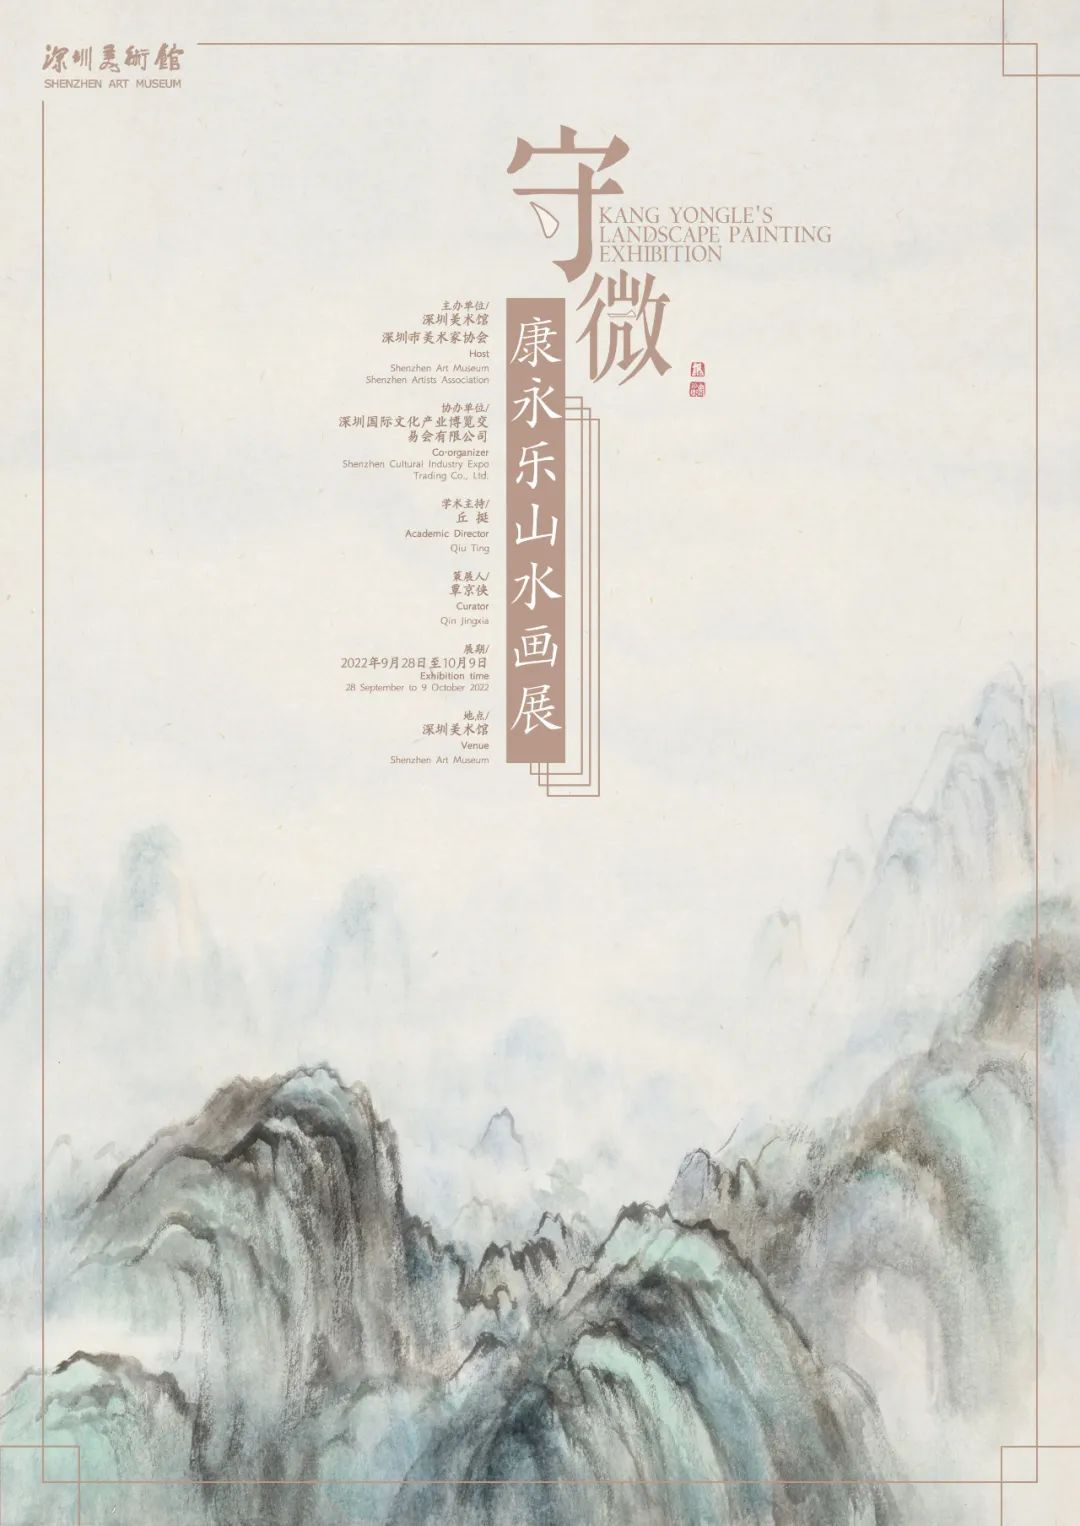 深圳美術館
SHENZHEN ART MUSEUM
守微
KANG YONGLE'S
LANDSCAPE PAINTING
EXHIBITION
康永乐山水画展
主办单位/
深圳美术馆
深圳市美术家协会
Host
Shenzhen Art Museum
Shenzhen Artists Association
协办单位/
深圳国际文化产业博览交
易会有限公司
Co-organizer
Shenzhen Cultural Industry Expo
Trading Co., Ltd.
学术主持/
丘 挺
Academic Director
Qiu Ting
策展人/
覃京侠
Curator
Qin Jingxia
展期/
2022年9月28日至10月9日
Exhibition time
28 September to 9 October 2022
地点/
深圳美术馆
Venue
Shenzhen Art Museum